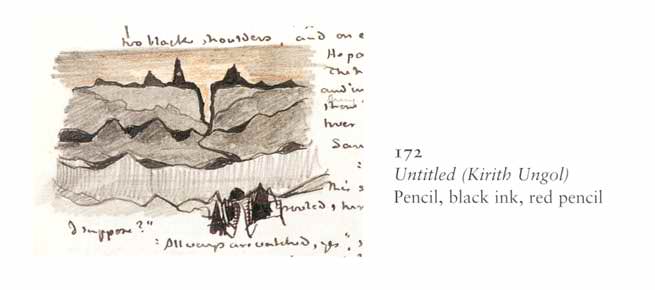 two black shoulders, and on e
He pa
and in
hver
Sam
This s
I suppose?"
"All ways are watched, yes", s
172
Untitled (Kirith Ungol)
Pencil, black ink, red pencil